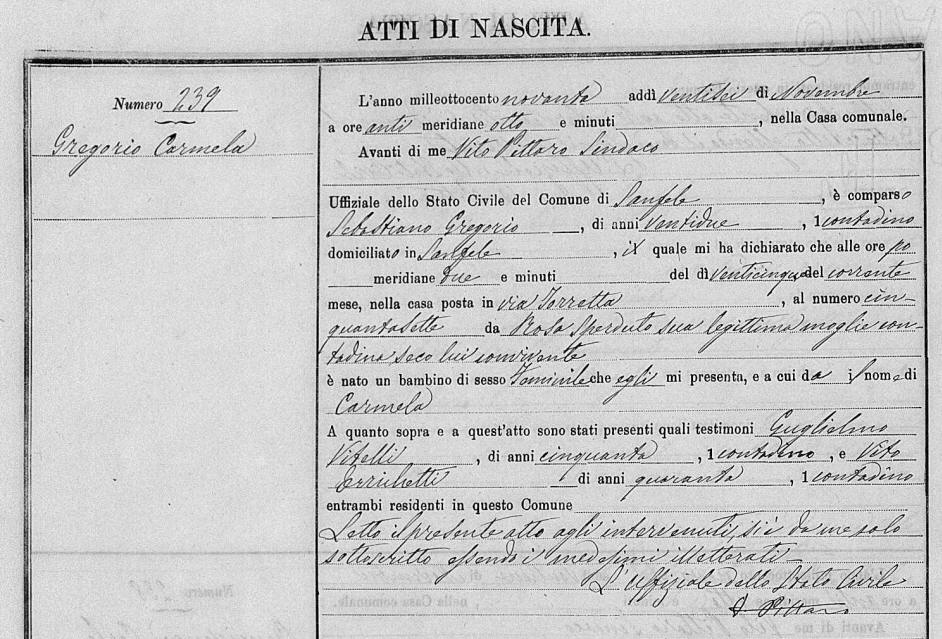 ATTI DI NASCITA.
Numero 239
Gregorio Carmela
L'anno milleottocento novanta addì ventisei di Novembre
a ore anti meridiane otto e minuti , nella Casa comunale.
Avanti di me Vito Pittaro Sindaco
Uffiziale dello Stato Civile del Comune di Sanfele , è comparso
Sebastiano Gregorio , di anni ventidue , contadino
domiciliato in Sanfele , il quale mi ha dichiarato che alle ore po
meridiane due e minuti del dì venticinque del corrente
mese, nella casa posta in via Torretta , al numero cin-
quantasette da Rosa Sperduto sua legittima moglie con-
tadina, seco lui convivente
è nato un bambino di sesso feminile che egli mi presenta, e a cui da il nome di
Carmela
A quanto sopra e a quest'atto sono stati presenti quali testimoni Guglielmo
Vitelli , di anni cinquanta , contadino , e Vito
Errichetti di anni quaranta , contadino
entrambi residenti in questo Comune
Letto il presente atto agli intervenuti, si è da me solo
sottoscritto essendo i medesimi illetterati -
L'Uffiziale dello Stato Civile
Pittaro